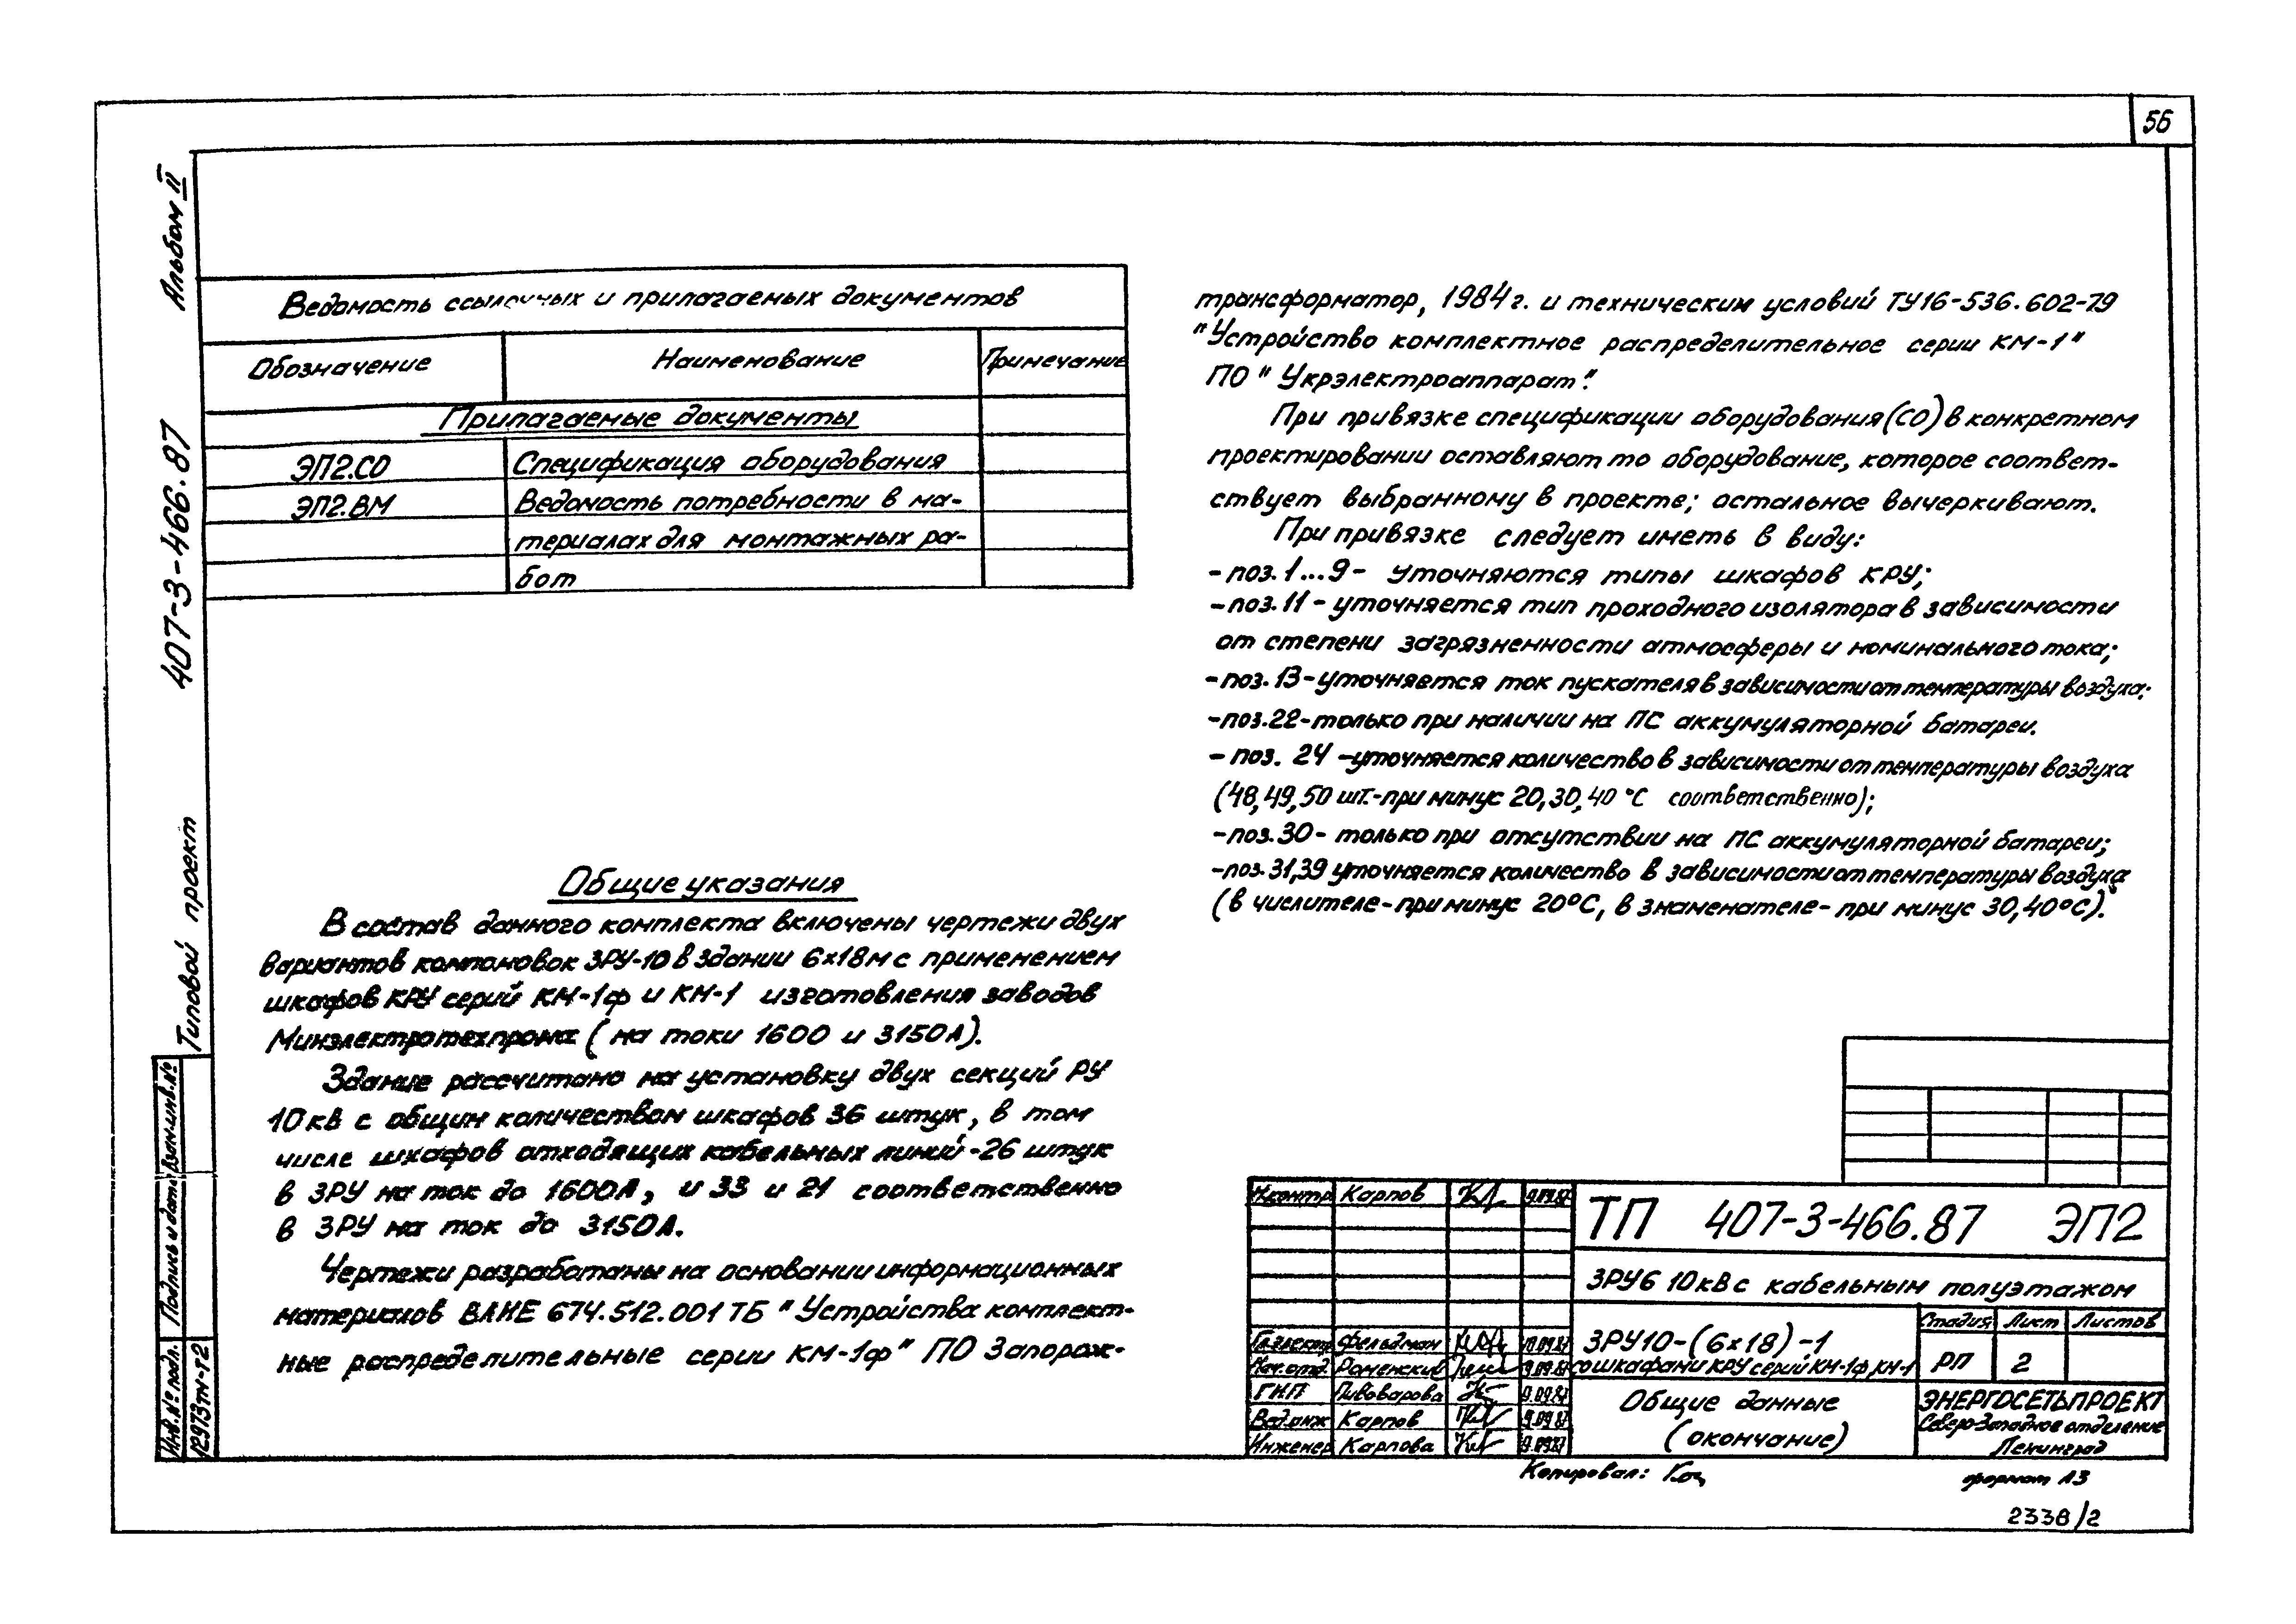 56
Альбом II
407-3-466.87
Типовой проект
Взам.инв.№
Подпись и дата
Инв.№ подл.
12973тм-т2
Ведомость ссылочных и прилагаемых документов
Обозначение Наименование Примечание
Прилагаемые документы
ЭП2.СО Спецификация оборудования
ЭП2.ВМ Ведомость потребности в ма-
териалах для монтажных ра-
бот
Общие указания
В состав данного комплекта включены чертежи двух
вариантов компоновок ЗРУ-10 в здании 6х18м с применением
шкафов КРУ серий КМ-1ф и КМ-1 изготовления заводов
Минэлектротехпрома (на токи 1600 и 3150А).
Здание рассчитано на установку двух секций РУ
10кВ с общим количеством шкафов 36 штук, в том
числе шкафов отходящих кабельных линий-26 штук
в ЗРУ на ток до 1600А, и 33 и 21 соответственно
в ЗРУ на ток до 3150А.
Чертежи разработаны на основании информационных
материалов ВЛИЕ 674.512.001 ТБ "Устройства комплект-
ные распределительные серии КМ-1ф" ПО Запорож-
трансформатор, 1984г. и технических условий ТУ16-536.602-79
"Устройство комплектное распределительное серии КМ-1"
ПО "Укрэлектроаппарат".
При привязке спецификации оборудования (СО) в конкретном
проектировании оставляют то оборудование, которое соответ-
ствует выбранному в проекте; остальное вычеркивают.
При привязке следует иметь в виду:
-поз.1...9- уточняются типы шкафов КРУ;
-поз.11-уточняется тип проходного изолятора в зависимости
от степени загрязненности атмосферы и номинального тока;
-поз.13-уточняется ток пускателя в зависимости от температуры воздуха;
-поз.22-только при наличии на ПС аккумуляторной батареи.
-поз. 24 -уточняется количество в зависимости от температуры воздуха
(48,49,50 шт.-при минус 20,30,40 °С соответственно);
-поз.30- только при отсутствии на ПС аккумуляторной батареи;
-поз.31,39 уточняется количество в зависимости от температуры воздуха
(в числителе-при минус 20°С, в знаменателе- при минус 30,40°С).
Н.контр Карпов 9.09.87
ТП 407-3-466.87 ЭП2
ЗРУ6 10кВ с кабельным полуэтажом
Гл.электр Фельдман 10.09.87
Нач.отд. Роменский 9.09.87
ГИП Пивоварова 9.09.87
Вед.инж Карпов 9.09.87
Инженер Карпова 9.09.87
ЗРУ10-(6х18)-1
со шкафами КРУ серий КМ-1ф, КМ-1
Стадия Лист Листов
РП 2
Общие данные
(окончание)
ЭНЕРГОСЕТЬПРОЕКТ
Северо-Западное отделение
Ленинград
Копировал:
формат А3
2338/2